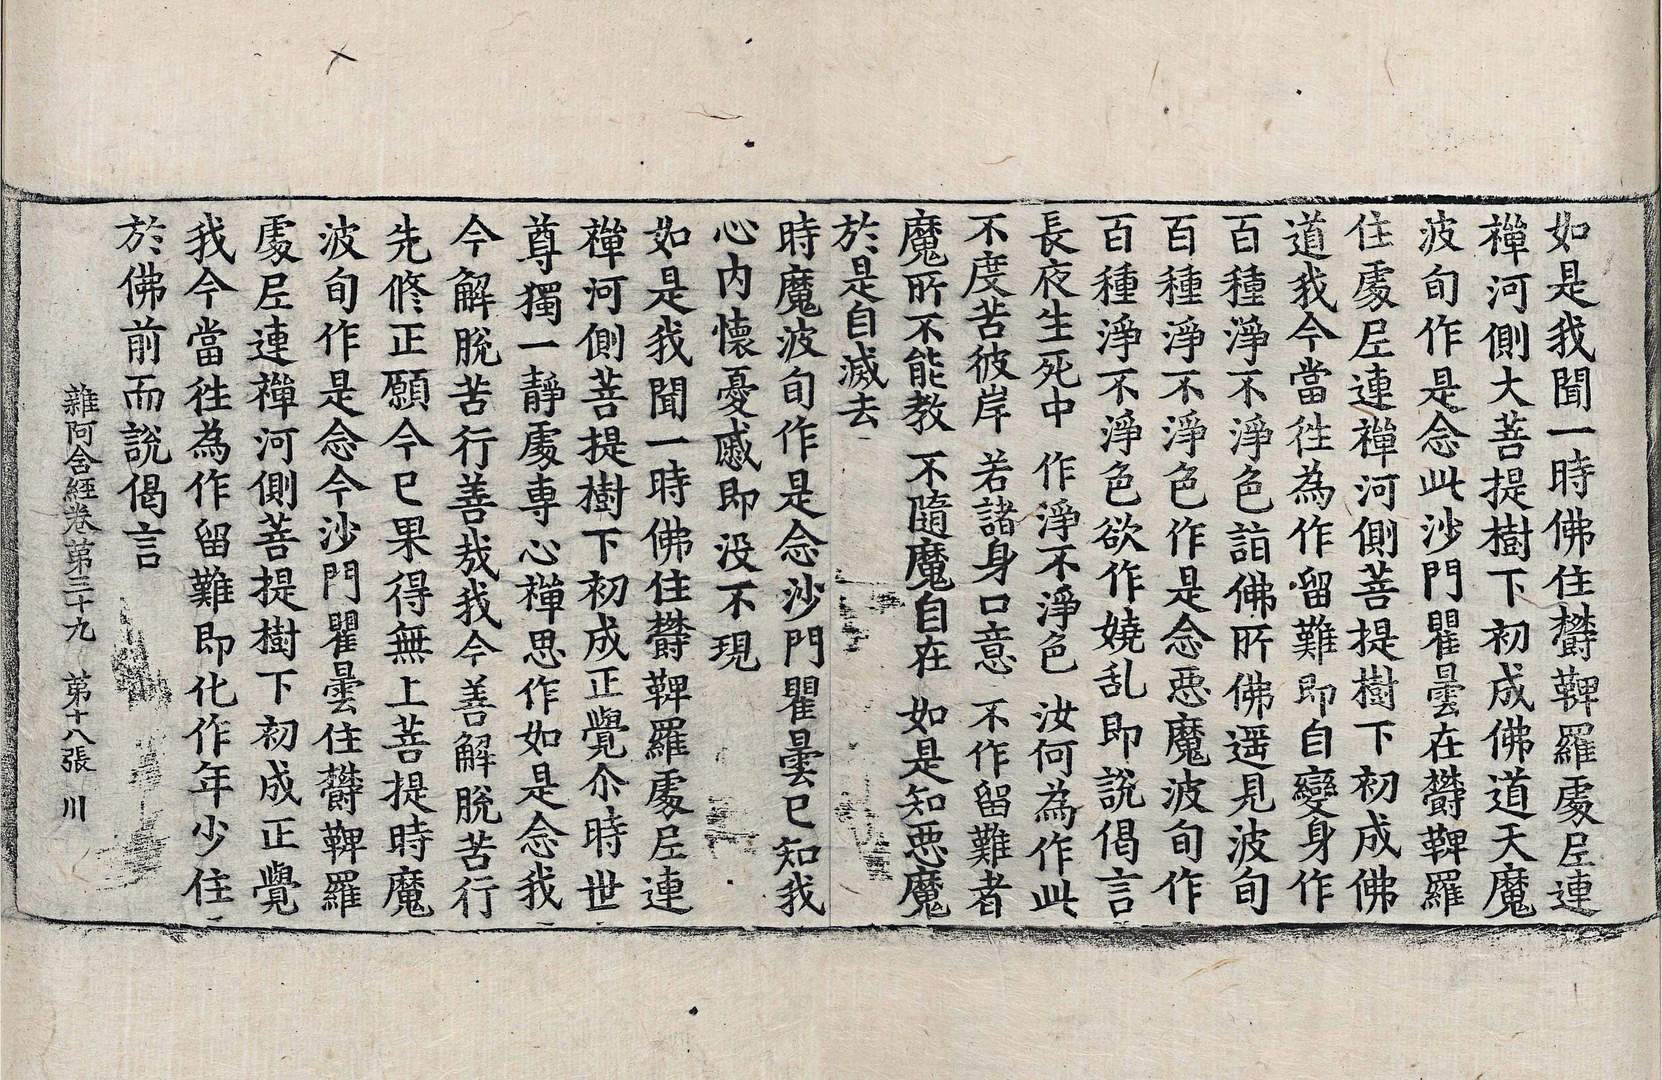 如是我聞一時佛住欝鞞羅處尼連
禪河側大菩提樹下初成佛道天魔
波旬作是念此沙門瞿曇在欝鞞羅
住處尼連禪河側菩提樹下初成佛
道我今當徃為作留難即自變身作
百種淨不淨色詣佛所佛遥見波旬
百種淨不淨色作是念惡魔波旬作
百種淨不淨色欲作嬈乱即說偈言
長夜生死中 作淨不淨色 汝何為作此
不度苦彼岸 若諸身口意 不作留難者
魔所不能教 不隨魔自在 如是知惡魔
於是自滅去
時魔波旬作是念沙門瞿曇已知我
心內懷憂慼即没不現
如是我聞一時佛住欝鞞羅處尼連
禪河側菩提樹下初成正覺尒時世
尊獨一靜處專心禪思作如是念我
今解脫苦行善哉我今善解脫苦行
先修正願今已果得無上菩提時魔
波旬作是念今沙門瞿曇住欝鞞羅
處尼連禪河側菩提樹下初成正覺
我今當徃為作留難即化作年少住
於佛前而說偈言
雜阿含經卷第三十九 第十八張 川